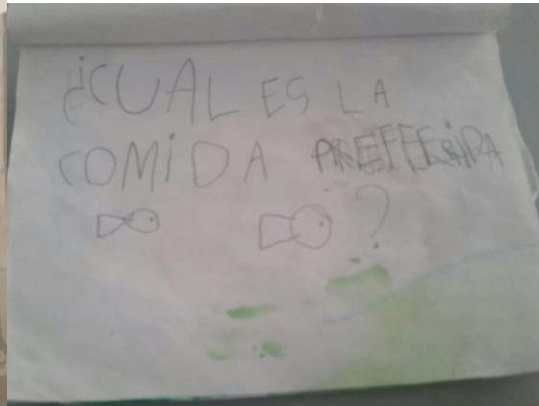 ¿CUAL ES LA
COMIDA PREFERIDA
?